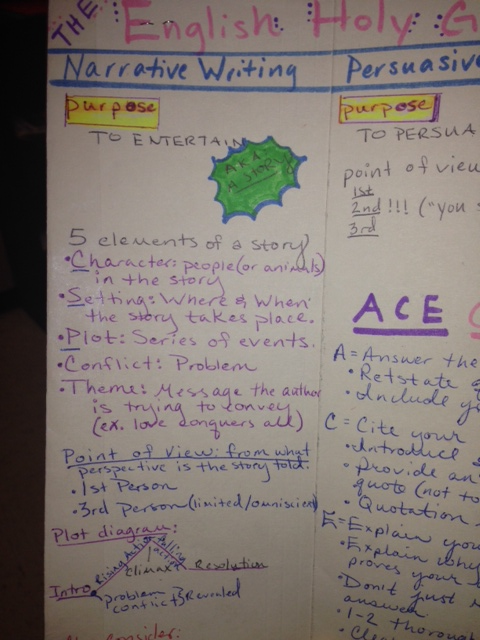 THE English Holy G
Narrative Writing
purpose
TO ENTERTAIN
AKA
A STORY
5 elements of a story
• Character: people (or animals)
in the story
• Setting: Where & When
the story takes place.
• Plot: Series of events.
• Conflict: Problem
• Theme: Message the author
is trying to convey
(ex. love conquers all)
Point of View: from what
perspective is the story told.
• 1st Person
• 3rd Person (limited/omniscient)
Plot diagram:
Rising Action
Falling Action
Climax
Resolution
Intro
problem &
conflict Revealed
Consider:
Persuasive
purpose
TO PERSUA
point of view
1st
2nd !!! ("you
3rd
ACE
A = Answer the
• Retstate
• Include
C = Cite your
• Introduce
• Provide an
quote (not to
• Quotation
E = Explain your
• Explain why
proves your
• Don't just
answer
• 1-2 thorough